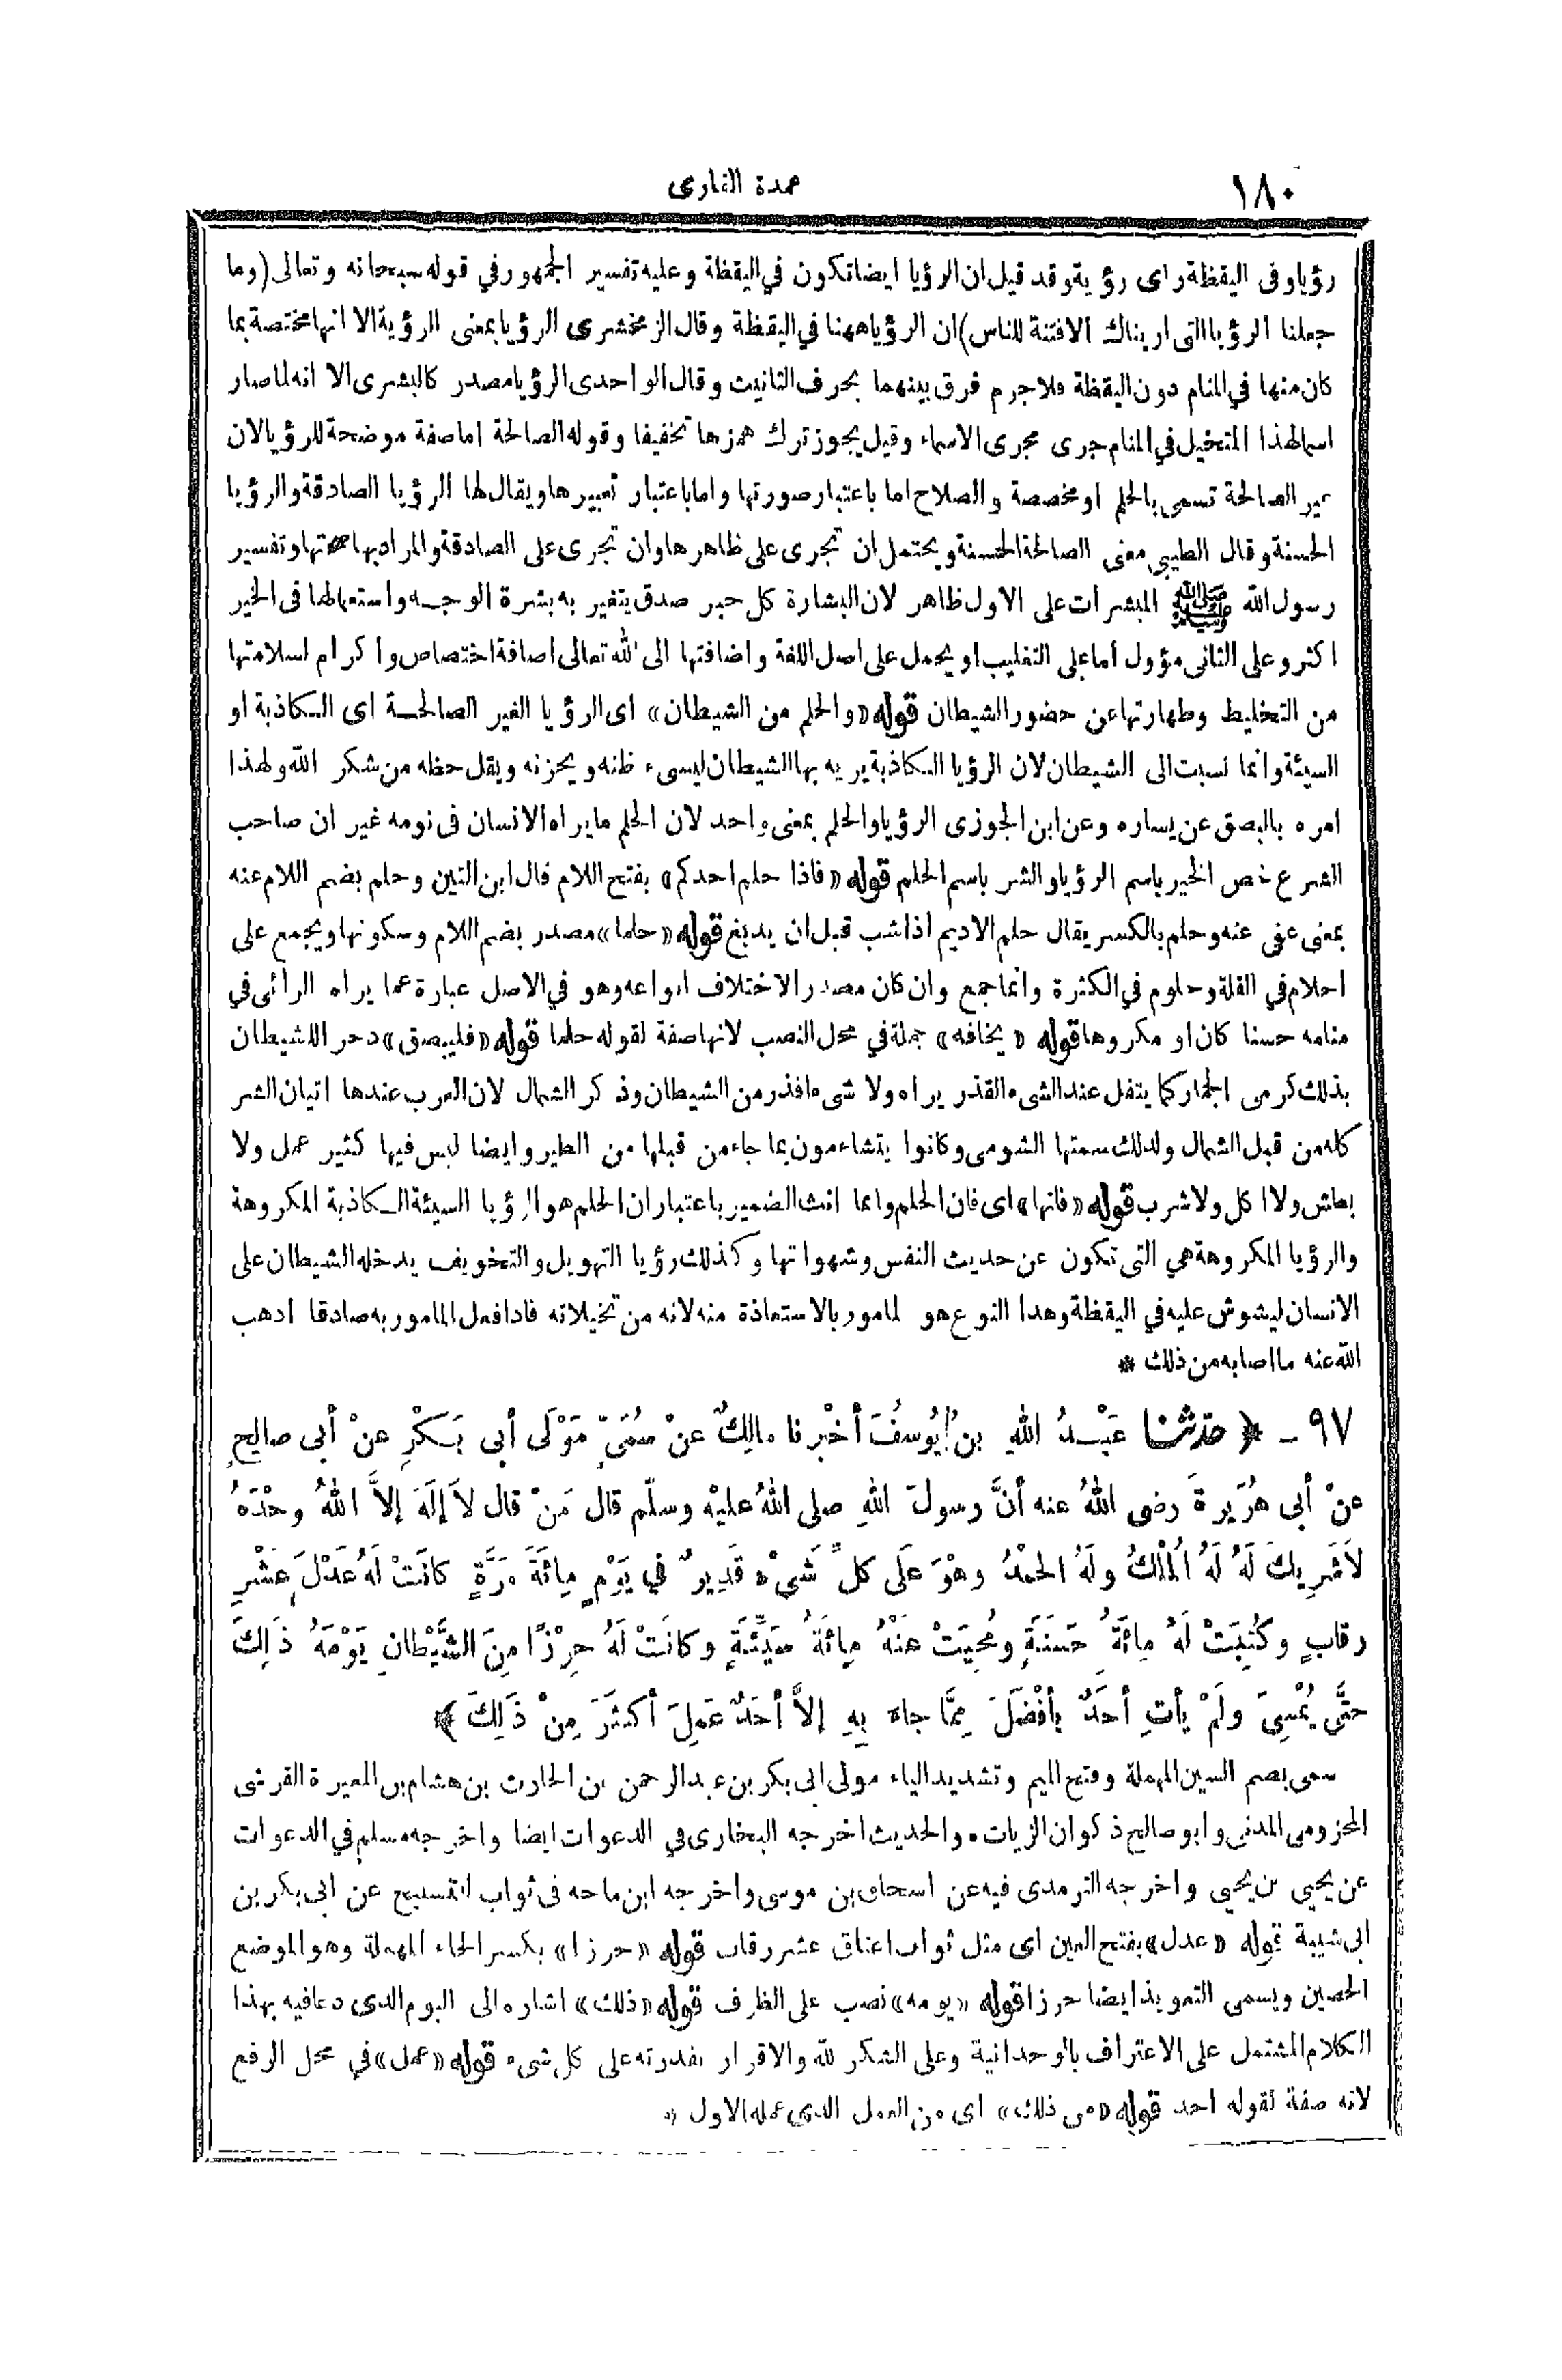 ١٨٠
عمدة القارى
رؤيا وفى اليقظة واى رؤية وقد قيل ان الرؤيا ايضا تكون في اليقظة وعليه تفسير الجمهور في قوله سبحانه وتعالى (وما
جعلنا الرؤيا التى اريناك الا فتنة للناس) ان الرؤيا ههنا في اليقظة وقال الزمخشرى الرؤيا بمعنى الرؤية الا انها مختصة بما
كان منها في المنام دون اليقظة فلا جرم فرق بينهما بحرف التانيث وقال الواحدى الرؤيا مصدر كالبشرى الا انه لما صار
اسما لهذا المتخيل في المنام جرى مجرى الاسماء وقيل يجوز ترك همزها تخفيفا وقوله الصالحة اما صفة موضحة للرؤيا لان
غير الصالحة تسمى بالحلم او مخصصة والصلاح اما باعتبار صورتها واما باعتبار تعبيرها ويقال لها الرؤيا الصادقة والرؤيا
الحسنة وقال الطيبى معنى الصالحة الحسنة ويحتمل ان تجرى على ظاهرها وان تجرى على الصادقة والمراد بها صحتها وتفسير
رسول الله ﷺ المبشرات على الاول ظاهر لان البشارة كل خبر صدق يتغير به بشرة الوجه واستعمالها فى الخير
اكثر وعلى الثانى مؤول اما على التغليب او يحمل على اصل اللغة واضافتها الى الله تعالى اضافة اختصاص واكرام لسلامتها
من التخليط وطهارتها عن حضور الشيطان قوله «والحلم من الشيطان» اى الرؤيا الغير الصالحة اى الكاذبة او
السيئة وانما نسبت الى الشيطان لان الرؤيا الكاذبة يريه بها الشيطان ليسىء ظنه ويحزنه ويقل حظه من شكر الله ولهذا
امره بالبصق عن يساره وعن ابن الجوزى الرؤيا والحلم بمعنى واحد لان الحلم ما يراه الانسان فى نومه غير ان صاحب
الشرع خص الخير باسم الرؤيا والشر باسم الحلم قوله «فاذا حلم احدكم» بفتح اللام قال ابن التين وحلم بضم اللام عنه
بمعنى عفى عنه وحلم بالكسر يقال حلم الاديم اذا شب قبل ان يدبغ قوله «حلما» مصدر بضم اللام وسكونها ويجمع على
احلام في القلة وحلوم في الكثرة وانما جمع وان كان مصدرا لاختلاف انواعه وهو في الاصل عبارة عما يراه الرائى في
منامه حسنا كان او مكروها قوله «يخافه» جملة في محل النصب لانها صفة لقوله حلما قوله «فليبصق» دحر اللشيطان
بذلك كرمى الجمار كما يتفل عند الشىء القذر يراه ولا شىء اقذر من الشيطان وذكر الشمال لان العرب عندها اتيان الشر
كله من قبل الشمال ولذلك سمتها الشومى وكانوا يتشاءمون بما جاء من قبلها من الطير وايضا ليس فيها كثير عمل ولا
بطش ولا اكل ولا شرب قوله «فانها» اى فان الحلم وانما انث الضمير باعتبار ان الحلم هو الرؤيا السيئة الكاذبة المكروهة
والرؤيا المكروهة هي التى تكون عن حديث النفس وشهواتها وكذلك رؤيا التهويل والتخويف يدخله الشيطان على
الانسان ليشوش عليه في اليقظة وهذا النوع هو المامور بالاستعاذة منه لانه من تخيلاته فاذا فعل المامور به صادقا اذهب
الله عنه ما اصابه من ذلك *
٩٧ - ﴿حدثنا عَبْدُ اللهِ بنُ يُوسُفَ أخْبرنا مالِكٌ عنْ سُمَىٍّ مَوْلَى أبى بَكْرٍ عنْ أبى صالِحٍ
عنْ أبى هُرَيرةَ رضى اللهُ عنه أنَّ رسولَ اللهِ صلى اللهُ عليْه وسلّم قال مَنْ قال لاَ إلَهَ إلاَّ اللهُ وحْدَهُ
لاَ شَرِيكَ لَهُ لَهُ المُلْكُ ولَهُ الحمْدُ وهْوَ عَلَى كلِّ شَىْءٍ قَدِيرٌ في يَوْمٍ مِائَةَ مَرَّةٍ كانَتْ لَهُ عَدْلَ عَشْرِ
رقابٍ وكُتِبَتْ لَهُ مِائَةُ حَسَنَةٍ ومُحِيَتْ عَنْهُ مِائَةُ سَيِّئَةٍ وكانَتْ لَهُ حِرْزًا مِنَ الشَّيْطانِ يَوْمَهُ ذَلِكَ
حتَّى يُمْسِىَ ولَمْ يأتِ أحَدٌ بأفْضَلَ مِمَّا جاء بِهِ إلاَّ أحَدٌ عَمِلَ أكثَرَ مِنْ ذَلِكَ﴾
سمى بضم السين المهملة وفتح الميم وتشديد الياء مولى ابى بكر بن عبد الرحمن بن الحارث بن هشام بن المغيرة القرشى
المخزومى المدنى وابو صالح ذكوان الزيات. والحديث اخرجه البخارى في الدعوات ايضا واخرجه مسلم في الدعوات
عن يحيى بن يحيى واخرجه الترمذى فيه عن اسحاق بن موسى واخرجه ابن ماجه فى ثواب التسبيح عن ابى بكر بن
ابى شيبة قوله «عدل» بفتح العين اى مثل ثواب اعتاق عشر رقاب قوله «حرزا» بكسر الحاء المهملة وهو الموضع
الحصين ويسمى التعويذ ايضا حرزا قوله «يومه» نصب على الظرف قوله «ذلك» اشاره الى اليوم الذى دعا فيه بهذا
الكلام المشتمل على الاعتراف بالوحدانية وعلى الشكر لله والاقرار بقدرته على كل شىء قوله «عمل» في محل الرفع
لانه صفة لقوله احد قوله «من ذلك» اى من العمل الذي عمله الاول *